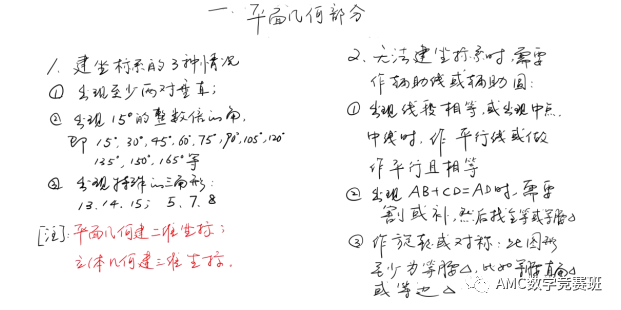 一. 平面几何部分
1. 建坐标系的3种情况
① 出现至少两对垂直;
② 出现15°的整数倍的角,
即 15°, 30°, 45°, 60°, 75°, 90°, 105°, 120°
135°, 150°, 165° 等
③ 出现特殊的三角形:
13. 14. 15; 5. 7. 8
[注]: 平面几何建二维坐标;
立体几何建三维坐标.
2. 无法建坐标系时, 需要
作辅助线或辅助圆:
① 出现线段相等, 或出现中点,
中线时, 作平行线或做
作平行且相等
② 出现 AB+CD=AD时, 需要
割或补, 然后找全等或等腰△
③ 作旋转或对称: 此图形
至少为等腰△, 比如等腰直角△
或等边△
AMC数学竞赛班